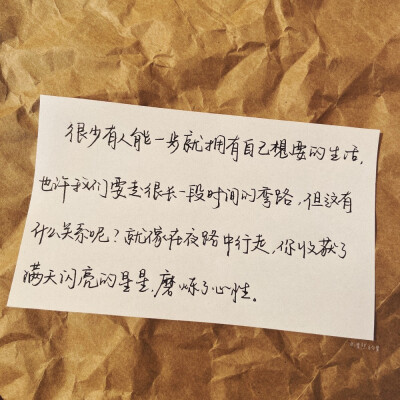 很少有人能一步就拥有自己想要的生活，
也许我们要走很长一段时间的弯路，但这有
什么关系呢？就像在夜路中行走，你收获了
满天闪亮的星星，磨炼了心性。